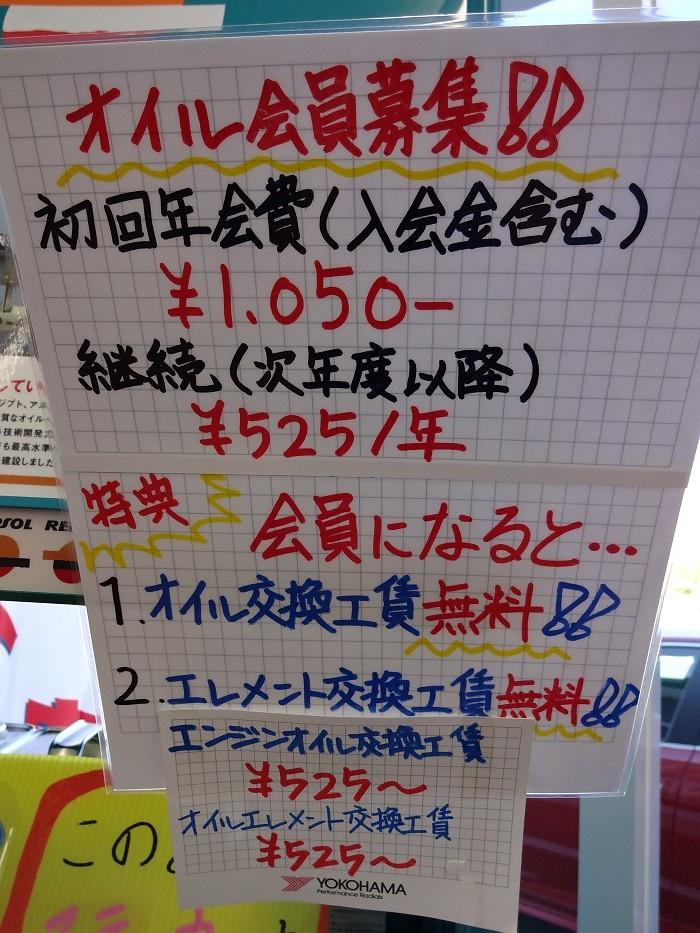 オイル会員募集!!
初回年会費(入会金含む)
¥1.050-
継続(次年度以降)
¥525/年
特典
会員になると…
1.オイル交換工賃無料!!
2.エレメント交換工賃無料!!
エンジンオイル交換工賃
¥525〜
オイルエレメント交換工賃
¥525〜
YOKOHAMA
Performance Radials
質なオイル
技術開発
も最高水準
建設しました
この